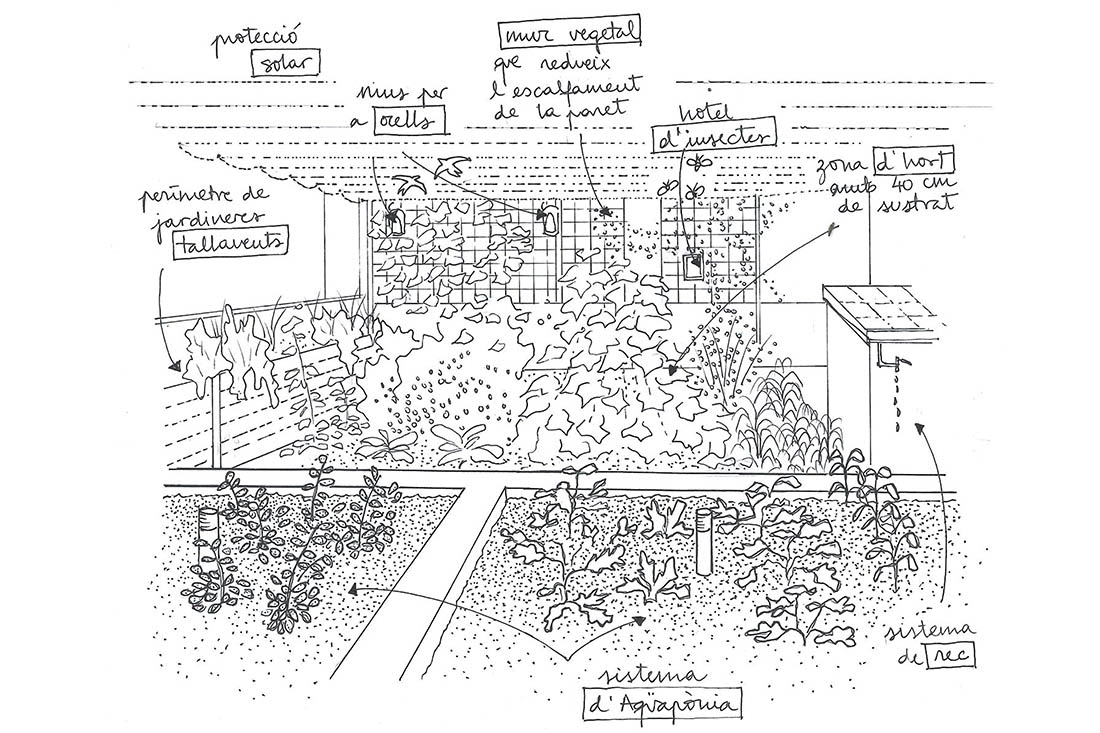 protecció
solar
mur vegetal
que redueix
l'escalfament
de la paret
nius per
a ocells
hotel
d'insectes
zona d'hort
amb 40 cm
de sustrat
perímetre de
jardineres
tallavents
sistema
de rec
sistema
d'Aqüapònia